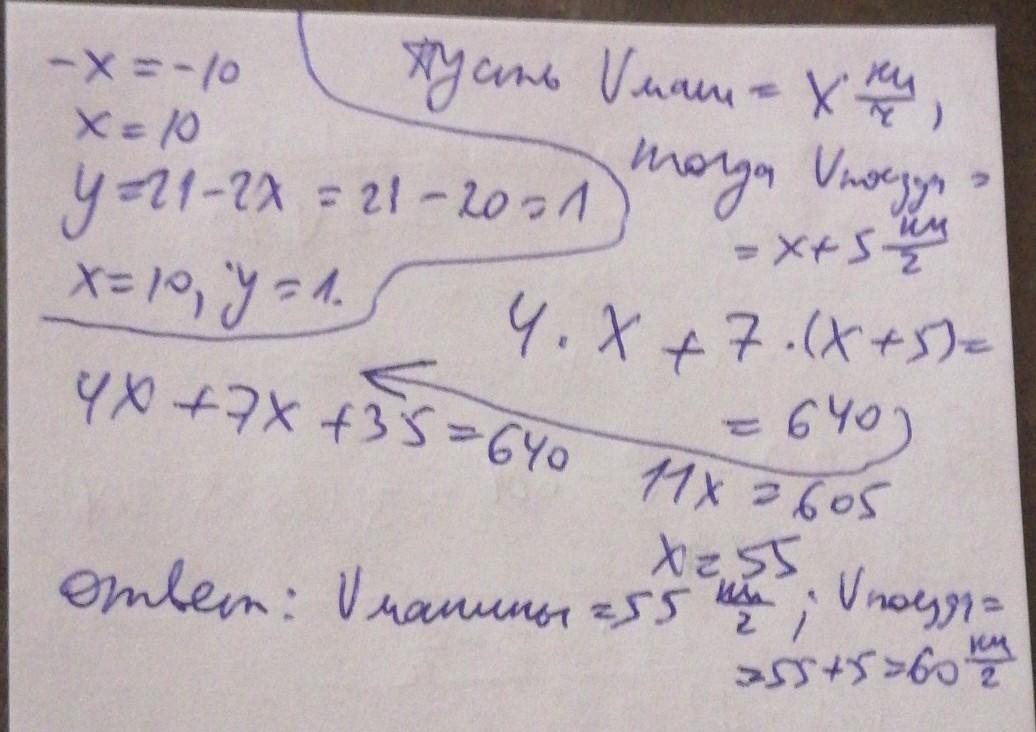 -x = -10
x = 10
y = 21 - 2x = 21 - 20 = 1
x = 10, y = 1.
Пусть Vмаш = x км/ч,
тогда Vпоезда =
= x + 5 км/ч
4 · x + 7 · (x + 5) =
= 640
4x + 7x + 35 = 640
11x = 605
x = 55
Ответ: Vмашины = 55 км/ч; Vпоезда =
= 55 + 5 = 60 км/ч